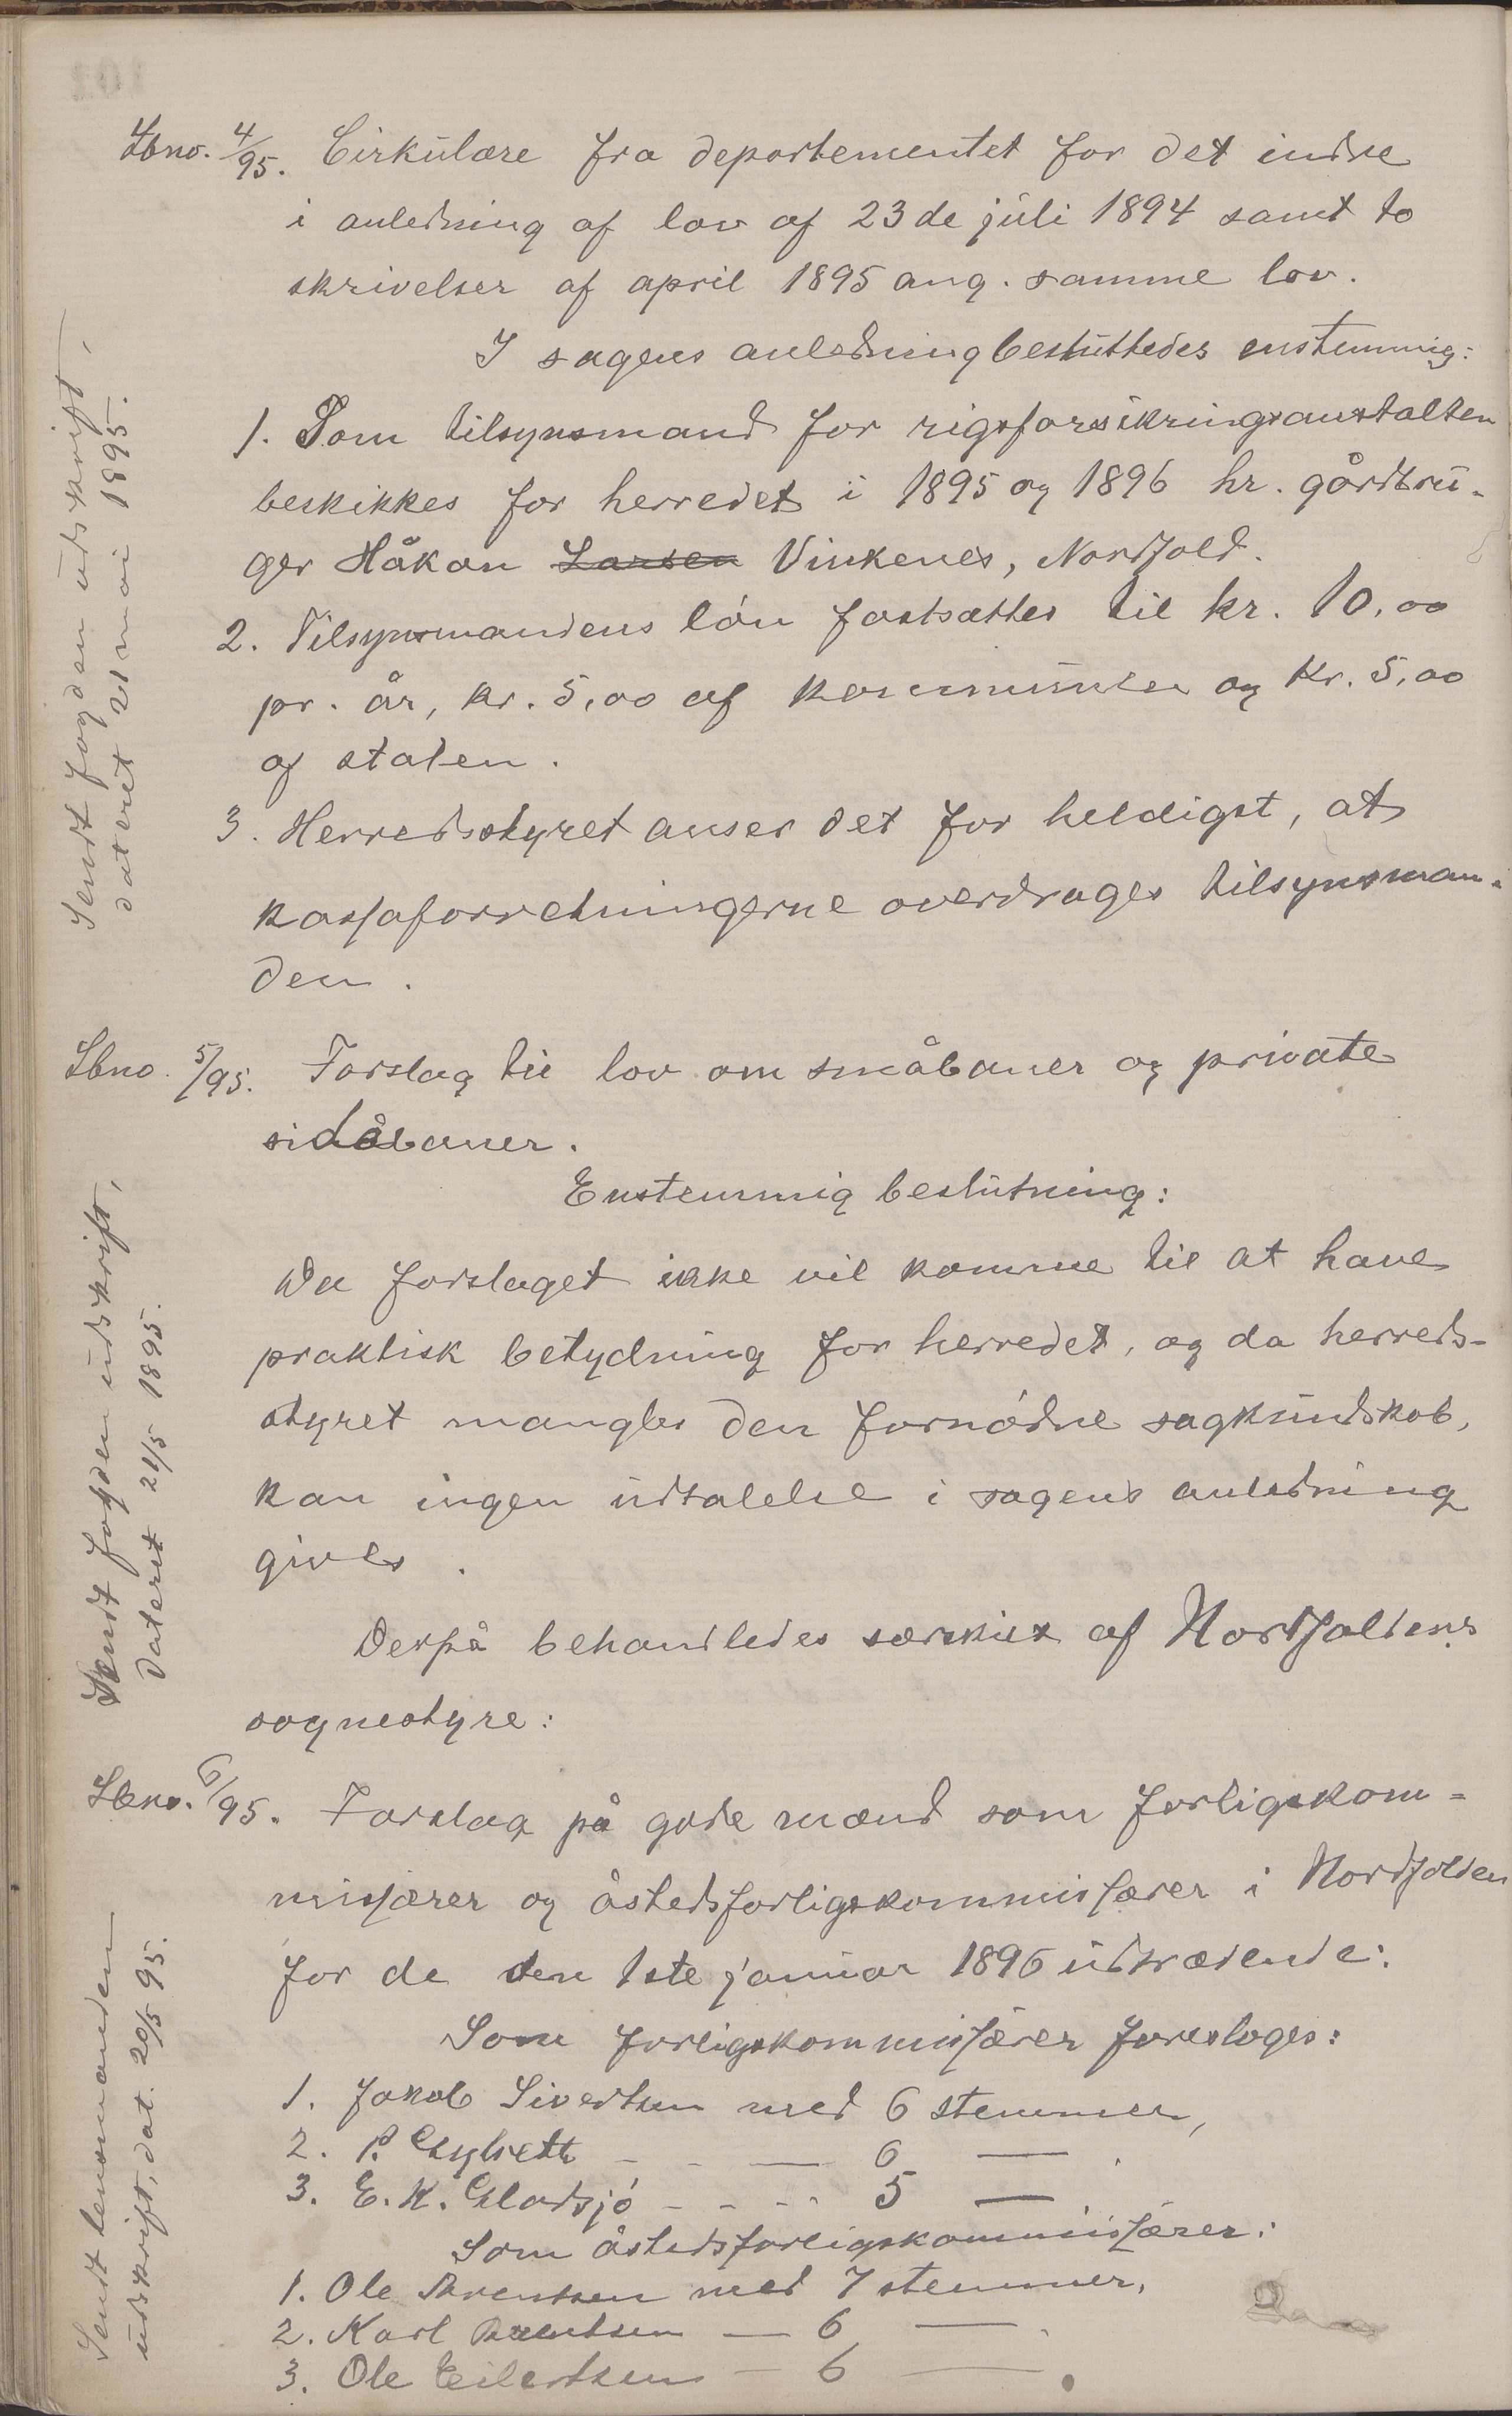 Lbno. 4/95. Cirkulære fra departementet for det indre
i anledning af lov af 23de juli 1894 samt to
skrivelser af april 1895 ang. samme lov.
I sagens anledning besluttedes enstemmig:
1. Som tilsynsmand for rigsforsikringsanstalten
beskikkes for herredet i 1895 og 1896 hr. gårdbru-
ger Håkon Larsen Vinkenes, Nordfold.
2. Tilsynsmandens løn fastsættes til kr. 10,00
pr. år, kr. 5,00 af kommunen og kr. 5,00
af staten.
3. Herredsstyret anser det for heldigst, at
kassaforretningerne overdrages tilsynsman-
den.
Sendt fogden udskrift,
dateret 21 mai 1895.
Lbno. 5/95. Forslag til lov om småbaner og private
sidebaner.
Enstemmig beslutning:
Da forslaget ikke vil komme til at have
praktisk betydning for herredet, og da herreds-
styret mangler den fornødne sagkundskab,
kan ingen udtalelse i sagens anledning
gives.
Sendt fogden udskrift,
dateret 21/5 1895.
Derpå behandledes særskilt af Nordfoldens
sognestyre:
Lbno. 6/95. Forslag på gode mænd som forligskom-
missærer og åstedsforligskommissærer i Nordfolden
for de den 1ste januar 1896 udtrædende:
Som forligskommissærer foresloges:
1. Jakob Sivertsen med 6 stemmer,
2. P. Gylseth - - — 6 — .
3. E. K. Gladsjø - - - - 5 —
Som åstedsforligskommissærer:
1. Ole Arentsen med 7 stemmer,
2. Karl Arentsen — 6 — .
3. Ole Eilertsen — 6 — .
Sendt lensmanden
udskrift, dat. 20/5 95.